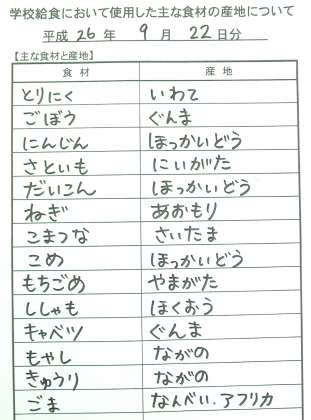 学校給食において使用した主な食材の産地について
平成 26 年 9 月 22 日分
【主な食材と産地】
食材 産地
とりにく いわて
ごぼう ぐんま
にんじん ほっかいどう
さといも にいがた
だいこん ほっかいどう
ねぎ あおもり
こまつな さいたま
こめ ほっかいどう
もちごめ やまがた
ししゃも ほくおう
キャベツ ぐんま
もやし ながの
きゅうり ながの
ごま なんべい.アフリカ